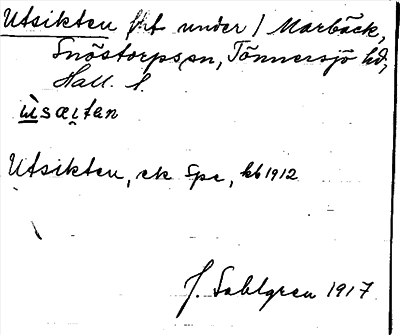 Utsikten fht under / Marbäck,
Snöstorps sn, Tönnersjö hd,
Hall. l.
ùsæɩtan
Utsikten, ek Spe, kb 1912
J. Sahlgren 1917